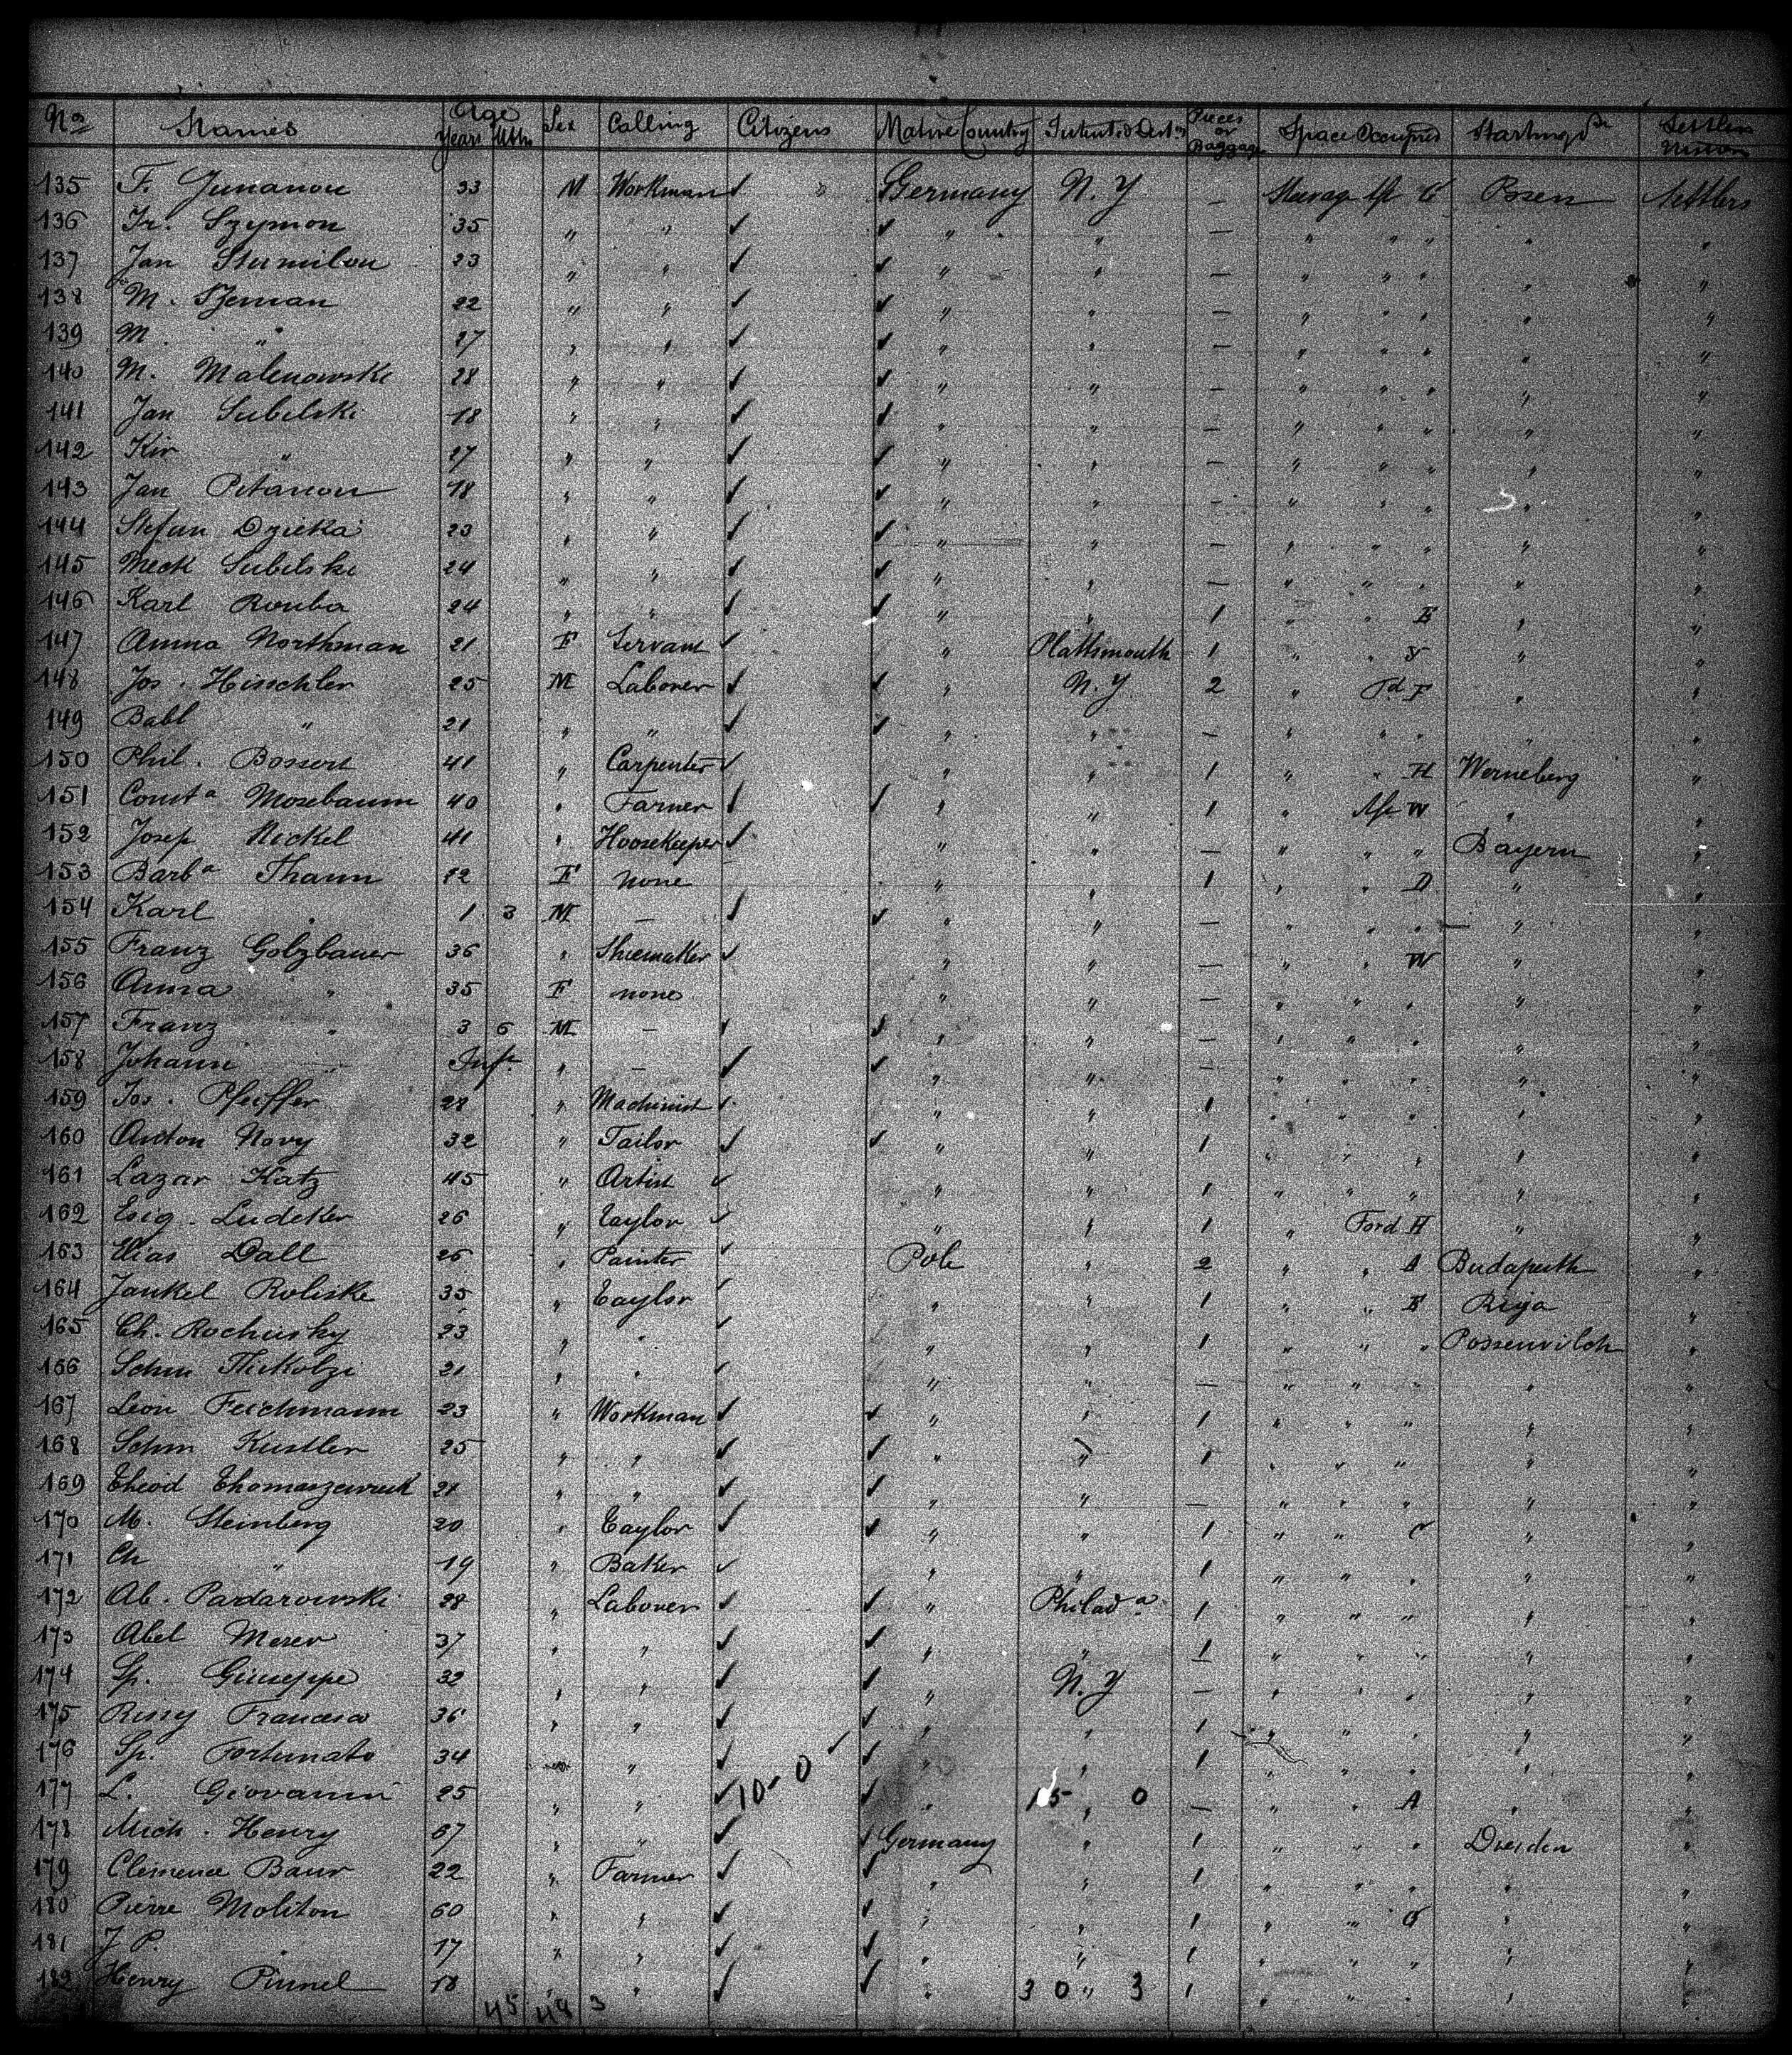 No Names Age Years Mths Sex Calling Citizens Native Country Intented Dest.n Pieces of Baggage Space Occupied Starting Settlers
135 F. Junanou 33 M Workman ✓ " Germany N. Y — Steerag Aft C Posen Settlers
136 Fr. Szymon 35 " " ✓ ✓ " " — " " " " "
137 Jan 23 " " ✓ ✓ " " — " " " " "
138 M. 22 " " ✓ ✓ " " — " " " " "
139 M. " 27 " " ✓ ✓ " " — " " " " "
140 M. Malenowski 28 " " ✓ ✓ " " — " " " " "
141 Jan Subilski 18 " " ✓ ✓ " " — " " " " "
142 Kir " 27 " " ✓ ✓ " " — " " " " "
143 Jan Pitanou 18 " " ✓ ✓ " " — " " " " "
144 Stefan Dzieka 23 " " ✓ ✓ " " — " " " " "
145 Meck Subilski 24 " " ✓ ✓ " " — " " " " "
146 Karl Rouba 24 " " ✓ ✓ " " 1 " " E " "
147 Anna Northman 21 F Servant ✓ " Plattsmouth 1 " " " "
148 Jos. Hischler 25 M Laborer ✓ ✓ " N. Y. 2 " Fd F " "
149 Babl " 21 " " ✓ ✓ " " — " " " " "
150 Phil. Bossert 41 " Carpenter ✓ " " 1 " " H Werneberg "
151 Const a Mosebaum 40 " Farmer ✓ ✓ " " 1 " Aft W " "
152 Josep Nickel 41 " Hoosekeeper ✓ " " — " " " Bayern "
153 Barb a Thann 12 F none " " 1 " " D " "
154 Karl " 1 3 M — ✓ ✓ " " — " " " " "
155 Franz Golzbauer 36 " Shiemaker ✓ " " — " " W " "
156 Anna " 35 F none " " — " " " " "
157 Franz " 3 6 M — ✓ ✓ " " — " " " " "
158 Johann " Inft " — ✓ ✓ " " — " " " " "
159 Jos. Pfeiffer 28 " Machinist ✓ " " 1 " " " " "
160 Anton Novy 32 " Tailor ✓ ✓ " " 1 " " " " "
161 Lazar Katz 45 " Artist ✓ " " 1 " " " " "
162 Esig. Ludeker 26 " Taylor ✓ " " 1 " Ford H " "
163 Elias Dall 26 " Painter ✓ Pole " 2 " " A Budapesth "
164 Jankel Roliske 35 " Taylor ✓ " " 1 " " E Riga "
165 Ch. Rochusky 23 " " ✓ " " 1 " " " Possenvilch "
166 Schm 21 " " ✓ " " — " " " " "
167 Leon Feichmann 23 " Workman ✓ ✓ " " 1 " " " " "
168 Schm Kustler 25 " " ✓ ✓ " " 1 " " " " "
169 Theod 21 " " ✓ ✓ " " — " " " " "
170 M. Steinberg 20 " Taylor ✓ ✓ " " 1 " " C " "
171 Ch " 19 " Baker ✓ " " 1 " " " " "
172 Ab. Padarowski 28 " Laborer ✓ ✓ " Philad a 1 " " " " "
173 Abel Meser 37 " " ✓ ✓ " " 1 " " " " "
174 Sp. Giuseppe 32 " " ✓ ✓ " N. Y — " " " " "
175 Russy Francesco 36 " " ✓ ✓ " " 1 " " " " "
176 Sp. Fortunato 34 " " ✓ ✓ " " 1 " " " " "
177 L. Giovanni 25 " " ✓ 10 0 ✓ " 15 " 0 — " " A " "
178 Mich. Henry 67 " " ✓ ✓ Germany " 1 " " " Dresden "
179 Clemence Baur 22 " Farmer ✓ ✓ " " 1 " " " " "
180 Pierre Moliton 60 " " ✓ ✓ " " 1 " " G " "
181 J P. " 17 " " ✓ ✓ " " 1 " " " " "
182 Henry Pinnel 18 " " ✓ ✓ " 3 0 " 3 1 " " " " "
45 48 3